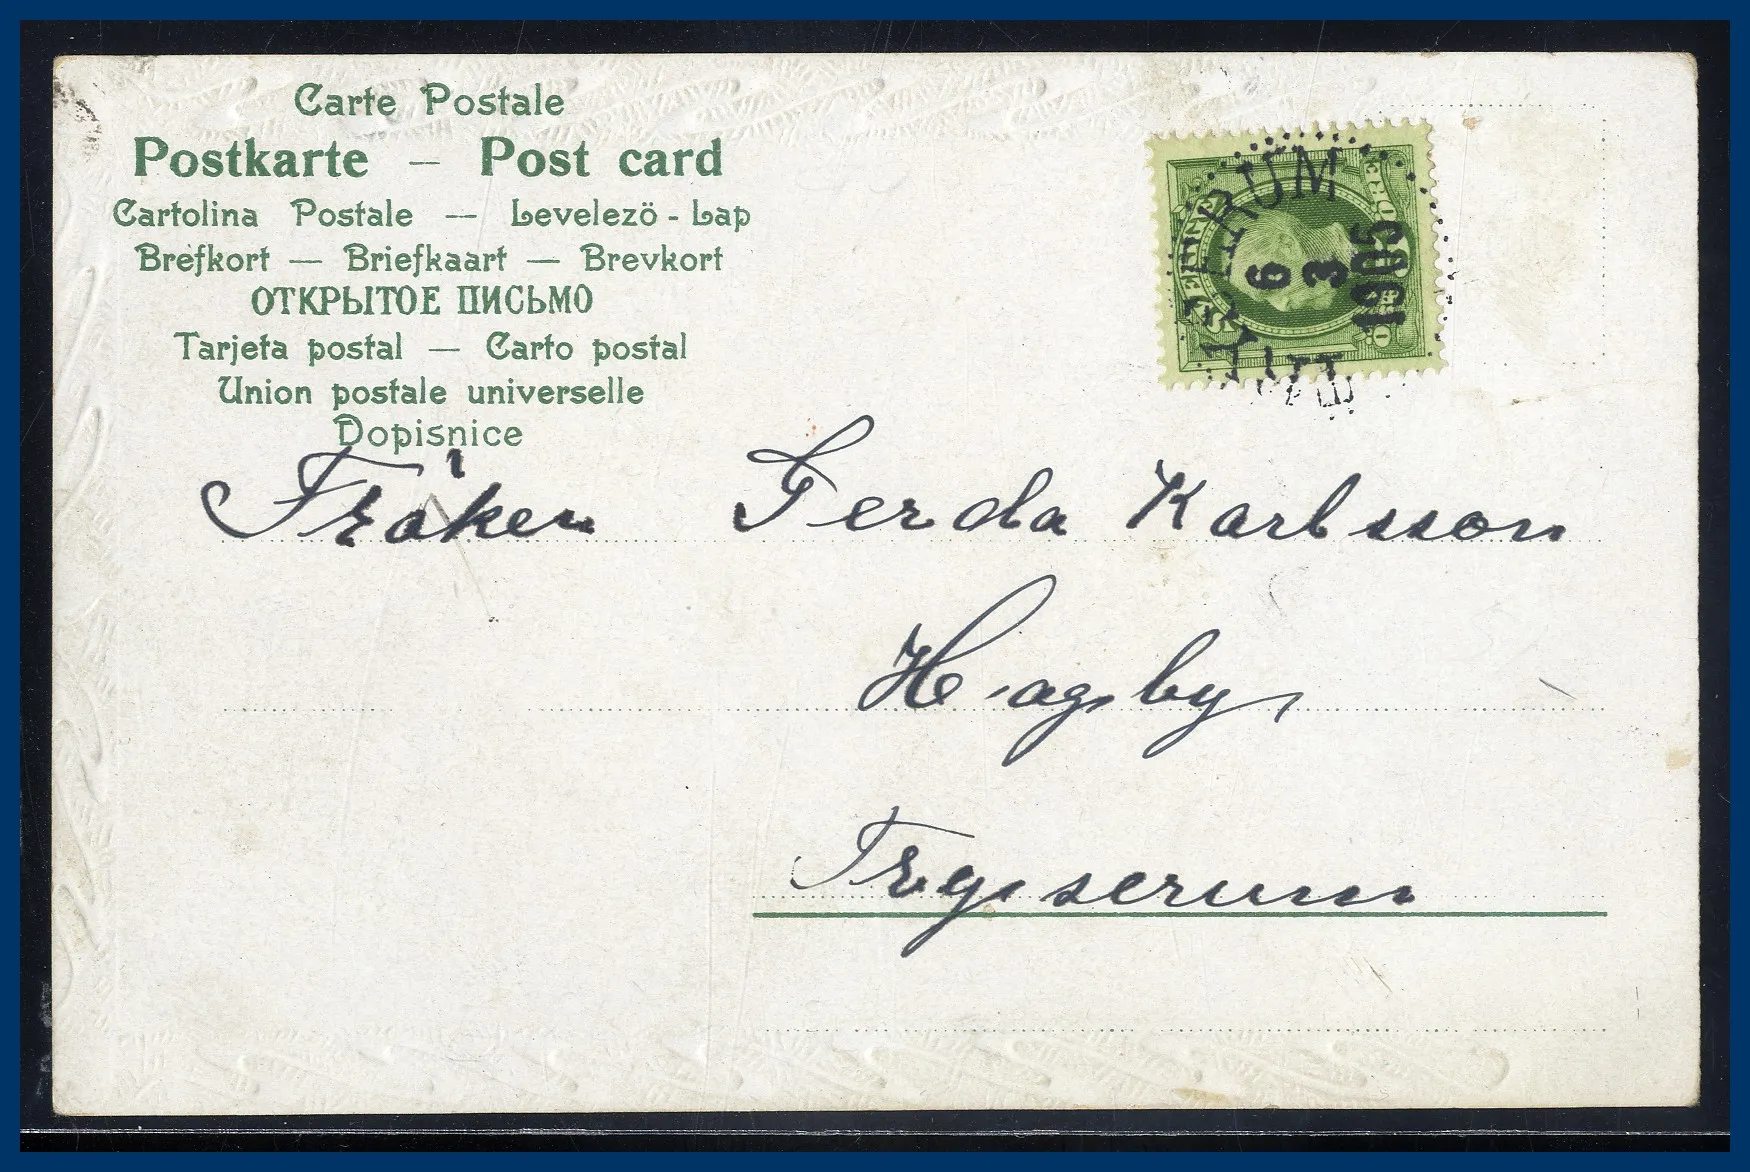 Carte Postale
Postkarte — Post card
Cartolina Postale — Levelezö - Lap
Brefkort — Briefkaart — Brevkort
ОТКРЫТОЕ ПИСЬМО
Tarjeta postal — Carto postal
Union postale universelle
Dopisnice
6
3
1905
Fröken Gerda Karlsson
Hagsby
Tryserum